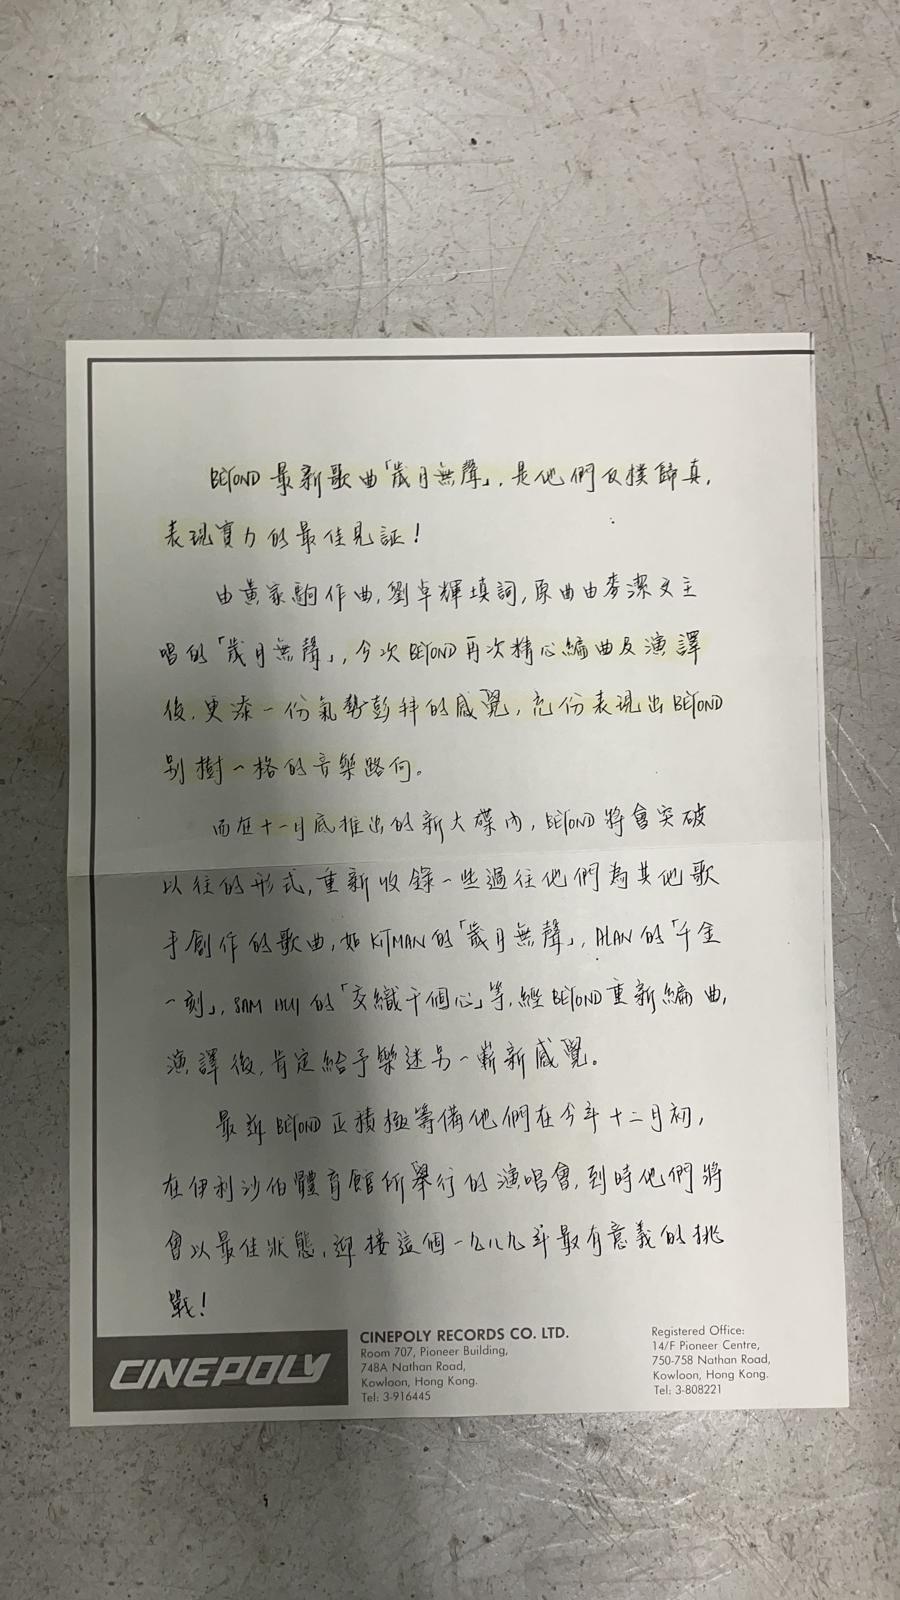 BEYOND 最新歌曲「歲月無聲」，是他們反樸歸真，
表現實力的最佳見証！
由黃家駒作曲，劉卓輝填詞，原曲由麥潔文主
唱的「歲月無聲」，今次 BEYOND 再次精心編曲及演譯
後，更添一份氣勢彭拜的感覺，充份表現出 BEYOND
別樹一格的音樂路向。
而在十一月底推出的新大碟內，BEYOND 將會突破
以往的形式，重新收錄一些過往他們為其他歌
手創作的歌曲，如 KITMAN 的「歲月無聲」，ALAN 的「千金
一刻」，SAM HUI 的「交織千個心」等，經 BEYOND 重新編曲，
演譯後，肯定給予樂迷另一嶄新感覺。
最近 BEYOND 正積極籌備他們在今年十二月初，
在伊利沙伯體育館所舉行的演唱會，到時他們將
會以最佳狀態，迎接這個一九八九年最有意義的挑
戰！
CINEPOLY
CINEPOLY RECORDS CO. LTD.
Room 707, Pioneer Building,
748A Nathan Road,
Kowloon, Hong Kong.
Tel: 3-916445
Registered Office:
14/F Pioneer Centre,
750-758 Nathan Road,
Kowloon, Hong Kong.
Tel: 3-808221